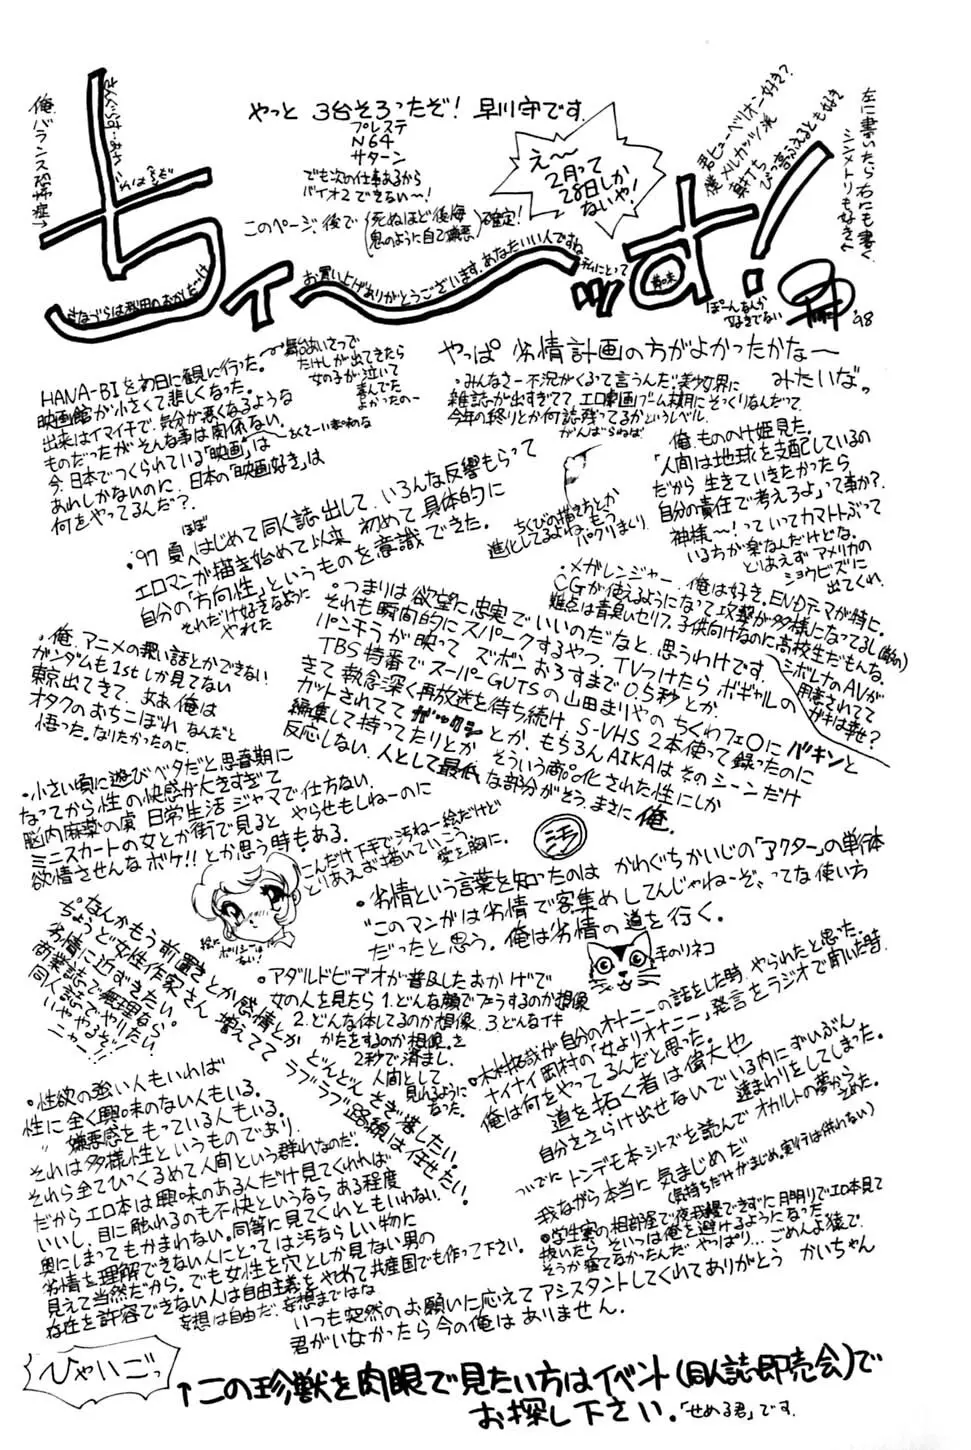 やっと 3台そろったぞ！ 早川守です.
プレステ
N64
サターン
でも次の仕事あるから
バイオ2できない〜！
このページ、後で(死ぬほど後悔 鬼のように自己嫌悪)確定!
え〜
2月って
28日しか
ないや!
君ヒューペリオン好き?
僕メルカッツ派
左に書いたら右にも書く
シンメトリも好き
俺、バランス恐怖症
ちィ〜ッす!
お買い上げありがとうございます、あなたいい人ですね
私にとって
ぽーんなんか
好きでない
'98
HANA-BIを初日に観に行った。
映画館が小さくて悲しくなった。
出来はイマイチで、気分が悪くなるような
ものだったがそんな事は関係ない。
今、日本でつくられている「映画」は
あれしかないのに、日本の「映画好き」は
何をやってるんだ?
舞台あいさつで
たけしが出てきたら
女の子が泣いて
喜んでた
よかったの〜
やっぱ 劣情計画の方がよかったかな〜
みたいなっ
・みんなさー不況がくるって言うんだ。美少女界に
雑誌が出すぎてて、エロ劇画ブーム末期にそっくりなんだって
今年の終りとか何誌残ってるかというレベル.
がんばらねば
俺、もののけ姫見た。
「人間は地球を支配しているの
だから 生きていきたかったら
自分の責任で考えろよ」って事か?
神様〜!っていってカマトトぶって
いる方が楽なんだけどな。
とりあえず アメリカの
ショウビズに
出てくれ
ちくびの描き方とか
進化してるよね、もう
パクリまくり
'97 夏、ほぼはじめて同人誌出して、いろんな反響もらって
エロマンガ描き始めて以来 初めて具体的に
自分の「方向性」というものを意識できた。
それだけ好きなように
やれた
・メガレンジャー、俺は好き。ENDテーマが特に。
CGが使えるようになって攻撃が多様になってるし
難点は青臭いセリフ。子供向けなのに高校生だもんな。
シボレナのAVが
用意されてて
ガキは幸せ?
・つまりは欲望に忠実でいいのだなと、思うわけです。
それも瞬間的にスパークするやつ。TVつけたら ボギャルの
パンチラが映って ズボンおろすまで0.5秒とか、
TBS特番でスーパーGUTSの山田まりやの ちくわフェ○にバキンと
きて執念深く再放送を待ち続け S-VHS 2本使って録ったのに
カットされててガックシとか、もちろんAIKAはそのシーンだけ
編集して持ってたりとか そういう商品化された性にしか
反応しない、人として最低な部分がそう、まさに俺.
・俺、アニメの濃い話とかできない
ガンダムも1stしか見てない
東京出てきて、ああ俺は
オタクのおちこぼれ なんだと
悟った。なりたかったのに.
・小さい頃に遊びベタだと思春期に
なってから性の快感が大きすぎて
脳内麻薬の虜 日常生活ジャマで仕方ない.
ミニスカートの女とか街で見ると やらせもしねーのに
欲情させんなボケ!!とか思う時もある.
こんだけ下手で汚ねー絵だけど
とりあえず描いていこう
愛を胸に.
ミモ
・劣情という言葉を知ったのは かわぐちかいじの「アクター」の単行本
"このマンガは劣情で客集めしてんじゃねーぞ、ってな使い方
だったと思う。俺は劣情の道を行く.
手のリネコ
・なんかもう 前置きとか感情とか
ちょうど女性作家さん 増えてて
劣情に近ずきたい。
商業誌で無理なら
同人誌でやりたい
いややるぞ!
ニャー!!
どんどん とぎ澄したい.
ラブラブ路線は任せたい.
絵にポリシーは
ない!
・アダルトビデオが普及したおかげで
女の人を見たら 1.どんな顔でフ○ラするのか想像
2.どんな体してるのか想像. 3どんなイキ
かたをするのか想像. を
2秒で済まし、
人間として
見れるように
なった.
・木村拓哉が自分のオナニーの話をした時、やられたと思った.
ナイナイ岡村の「女よりオナニー」発言をラジオで聞いた時
俺は何をやってるんだと思った。
道を拓く者は偉大也
自分をさらけ出せないでいる内にずいぶん
遠まわりをしてしまった。
ついでに トンデモ本シリーズを読んで オカルトの夢から
さめた.
我ながら本当に 気まじめだ
(気持ちだけがまじめ。実行は伴わない)
・性欲の強い人もいれば
性に全く興味のない人もいる.
〃 嫌悪感をもっている人もいる.
それは多様性というものであり、
それら全てひっくるめて人間という群れなのだ.
だからエロ本は興味のある人だけ見てくれれば
いいし、目に触れるのも不快というなら ある程度
奥にしまってもかまわない.同等に見てくれともいわない.
劣情を理解できない人にとっては汚ならしい物に
見えて当然だから. でも女性を穴としか見ない男の
存在を許容できない人は自由主義をやめて共産国でも作って下さい.
妄想は自由だ. 妄想まではな
・学生寮の相部屋で夜我慢できずに月明りでエロ本見て
抜いたら、そいつは俺を避けるようになった
そうか寝てなかったんだ やっぱり…ごめんよ後で.
いつも突然のお願いに応えて アシスタントしてくれてありがとう かいちゃん
君がいなかったら今の俺はありません.
ひゃいごっ
↑この珍獣を肉眼で見たい方はイベント(同人誌即売会)で
お探し下さい.「せめる君」です.